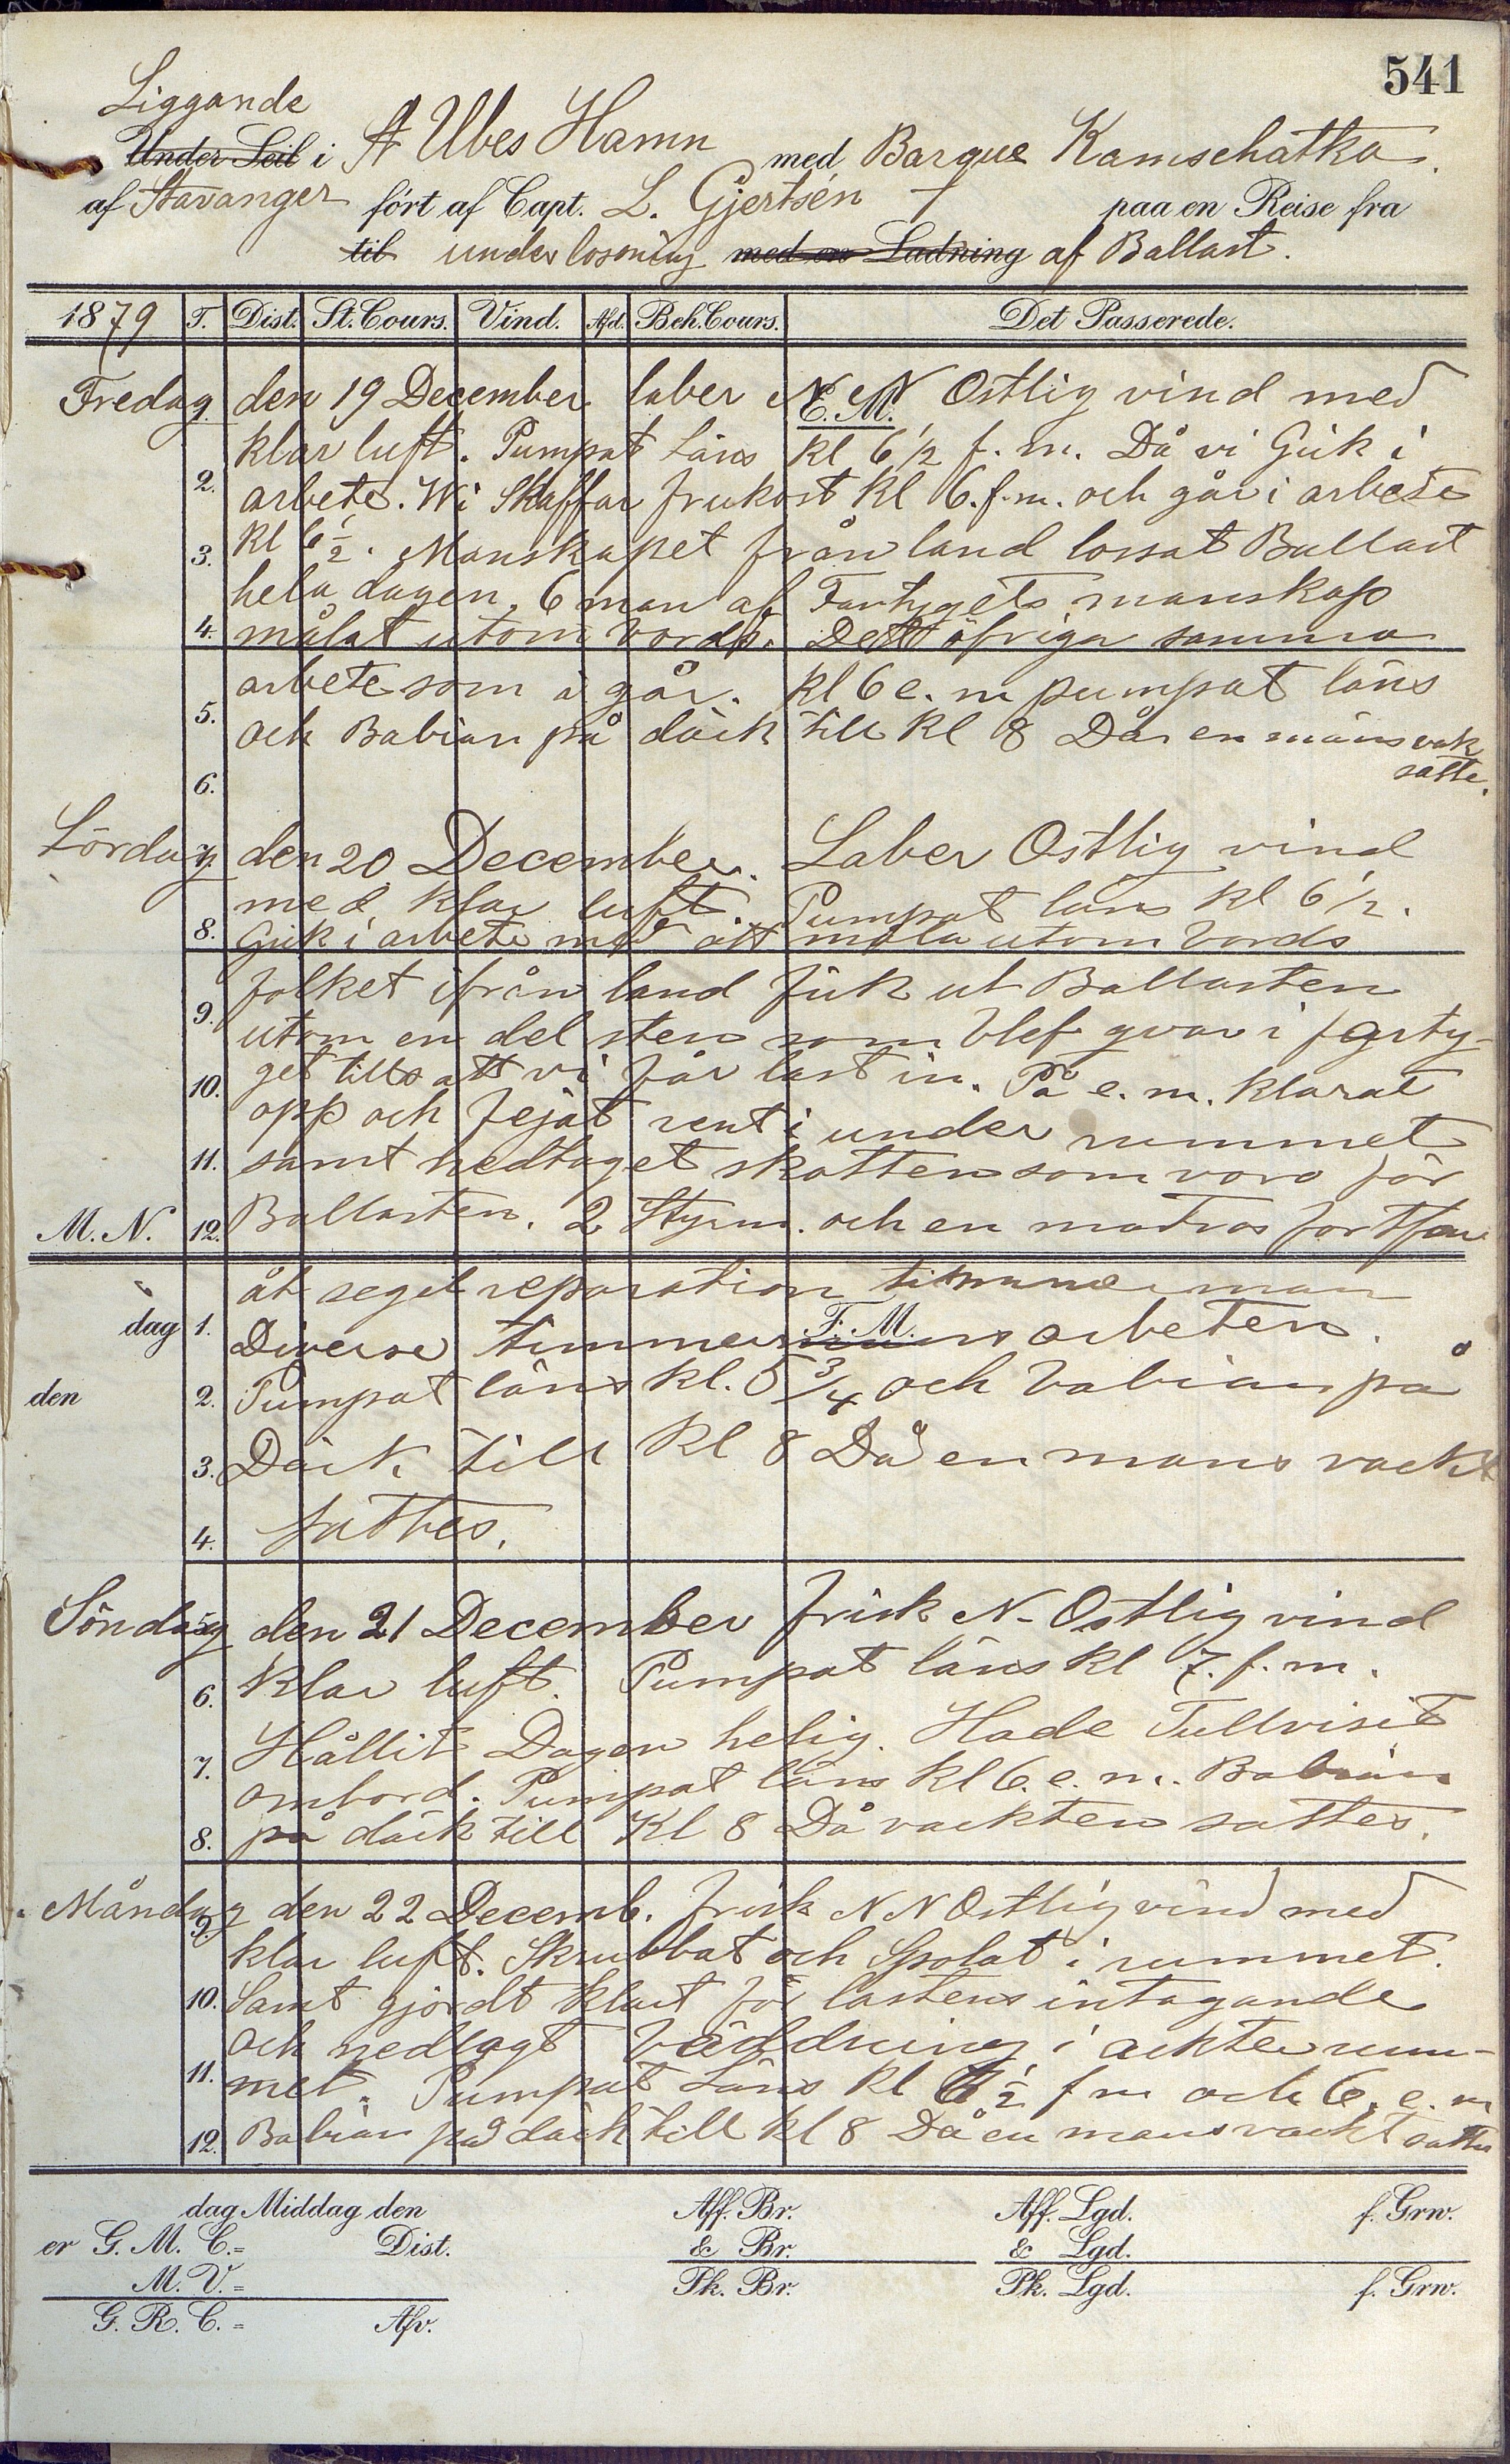 541
Liggande
Under Seil i St Ubes Hamn med Barque Kamschatka.
af Stavanger ført af Capt. L. Gjertsén paa en Reise fra
til under lossning med en Ladning af Ballast.
1879 T. Dist. St. Cours. Vind. Afd. Beh. Cours. Det Passerede.
Fredag den 19 December laber N N Ostlig vind med
E. M.
klar luft. Pumpat läns kl 6 1/2 f. m. Då vi Gick i
2. arbete. Wi Skaffar frukost kl 6. f. m. och går i arbete
3. kl 6 1/2. Manskapet från land lossat Ballast
hela dagen. 6 man af Fartygets manskap
4. målat utom bords. Dett öfriga samma
arbete som i går. kl 6 e. m pumpat läns
5. och Babian på däck till kl 8 Då en mans vak
satte.
6.
Lördag den 20 December. Laber Ostlig vind
7.
med klar luft. Pumpat läns kl 6 1/2.
8. Gick i arbete med att måla utom bords
folket ifrån land fick ut Ballasten
9. utom en del sten som blef qvar i farty-
10. get tills att vi får last in. På e. m. klarat
opp och fejat rent i under rummet
11. samt nedtaget skotten som voro för
M. N. 12. Ballasten. 2 Styrm. och en matros fortfar
åt segel reparation timmerman
dag 1. Diverse timmermans arbeten.
F. M.
den 2. Pumpat läns kl. 5 3/4 och babian på
3. Däck till kl 8 Då en mans vackt
4. sattes.
Söndag den 21 December frisk N-Ostlig vind
5.
6. klar luft. Pumpat läns kl 7. f. m.
7. Hållit Dagen helig. Hade Tullvisit
ombord. Pumpat läns kl 6. e. m. Babian
8. på däck till Kl 8 Då vackten sattes.
Måndag den 22 Decemb. frisk N N Ostlig vind med
9.
klar luft. Skrubbat och Spolat i rummet.
10. Samt gjordt klart för lastens intagande
och nedlagt i akterrum-
11. met. Pumpat Läns kl 6 1/2 f m och 6. e. m
12. Babian på däck till kl 8 Då en mans vackt sattes
dag Middag den Aff. Br. Aff. Lgd. f. Grw.
er G. M. C.= Dist. & Br. & Lgd.
M. V.= Pk. Br. Pk. Lgd. f. Grw.
G. R. C.= Afv.